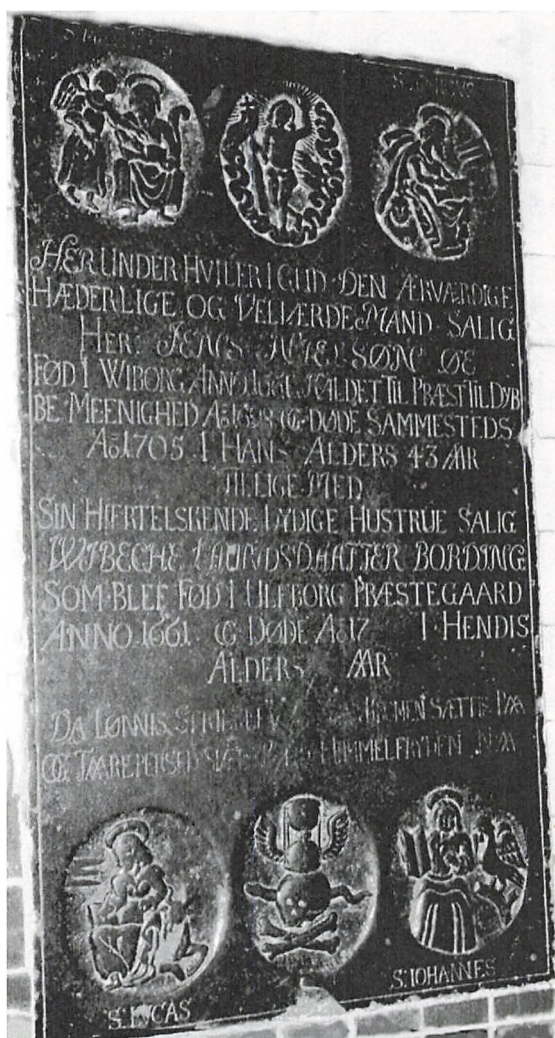 HER UNDER HVILER I GUD DEN ÆRVÆRDIGE
HÆDERLIGE OG VELLÆRDE MAND SALIG
HER: JENS NIELSØN ØE
FØD I WIBORG ANNO KALDET TIL PRÆST TIL DYB
BE MEENIGHED Aō OG DØDE SAMMESTEDS
Aō 1705 I HANS ALDERS 43 AAR
TILLIGE MED
SIN HIERTELSKENDE LYDIGE HUSTRUE SALIG
WIBECHE LAURIDSDAATTER BORDING
SOM BLEF FØD I ULFBORG PRÆSTEGAARD
ANNO 1661 OG DØDE Aō 17 I HENDIS
ALDERS AAR
DA LØNNIS SÆTTIS PAA
OG TAARE HIMMELFRYDEN NAA
S. LUCAS
S. IOHANNES